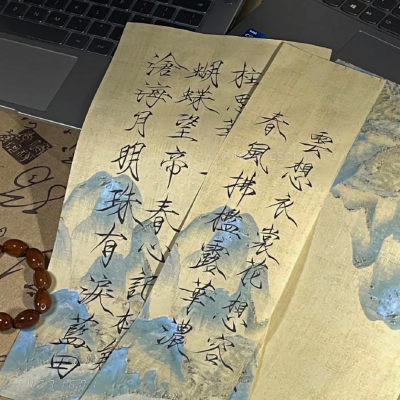 雲想衣裳花想容
春風拂檻露華濃
柱思
蝴蝶望帝春心託
滄海月明珠有淚藍田